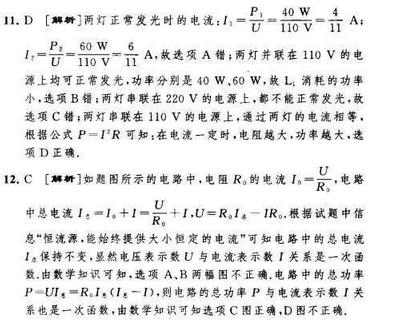 11. D [解析]两灯正常发光时的电流:I₁=P₁/U=40 W/110 V=4/11 A;
I₂=P₂/U=60 W/110 V=6/11 A,故选项 A 错;两灯并联在 110 V 的电
源上均可正常发光,功率分别是 40 W、60 W,故 L₁ 消耗的功率
小,选项 B 错;两灯串联在 220 V 的电源上,都不能正常发光,故
选项 C 错;两灯串联在 110 V 的电源上,通过两灯的电流相等,
根据公式 P=I²R 可知:在电流一定时,电阻越大,功率越大,选
项 D 正确.
12. C [解析]如题图所示的电路中,电阻 R₀的电流 I₀=U/R₀,电路
中总电流 I总=I₀+I=U/R₀+I,U=R₀I总-IR₀.根据试题中信
息“恒流源,能始终提供大小恒定的电流”可知电路中的总电流
I总保持不变,显然电压表示数 U 与电流表示数 I 关系是一次函
数.由数学知识可知,选项 A、B 两幅图不正确.电路中的总功率
P=UI总=R₀I总(I总-I),则电路的总功率 P 与电流表示数 I 关
系也是一次函数,由数学知识可知选项 C 图正确,D 图不正确.